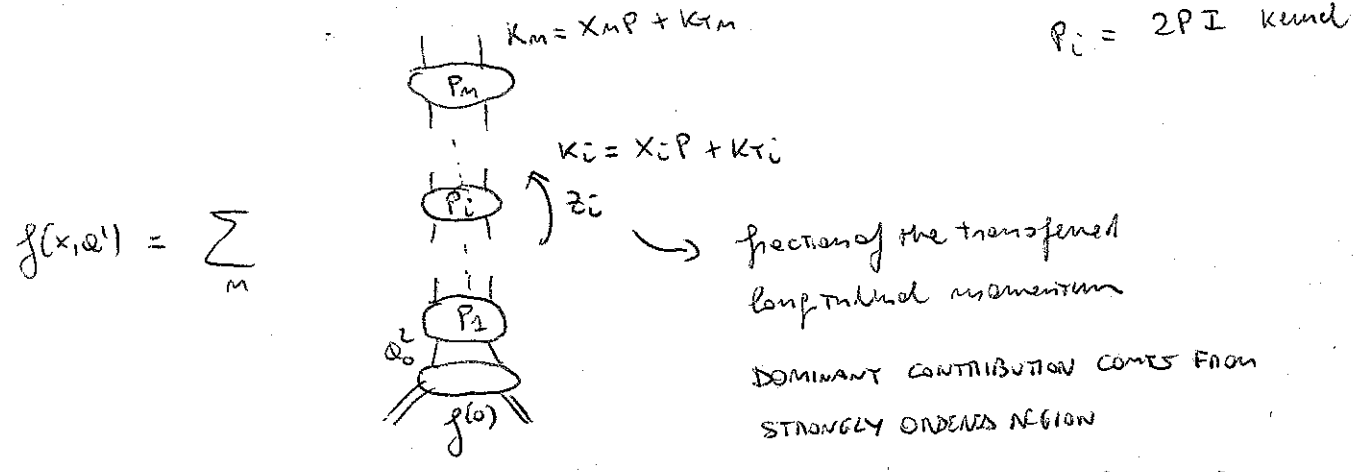 Kₘ = XₘP + Kₜₘ
Pᵢ = 2PI Kernel
Pₘ
Kᵢ = XᵢP + Kₜᵢ
Pᵢ
zᵢ
f(x,Q²) = Σ
m
fraction of the transferred
longitudinal momentum
P₁
Q₀²
DOMINANT CONTRIBUTION COMES FROM
STRONGLY ORDERED REGION
f⁽⁰⁾